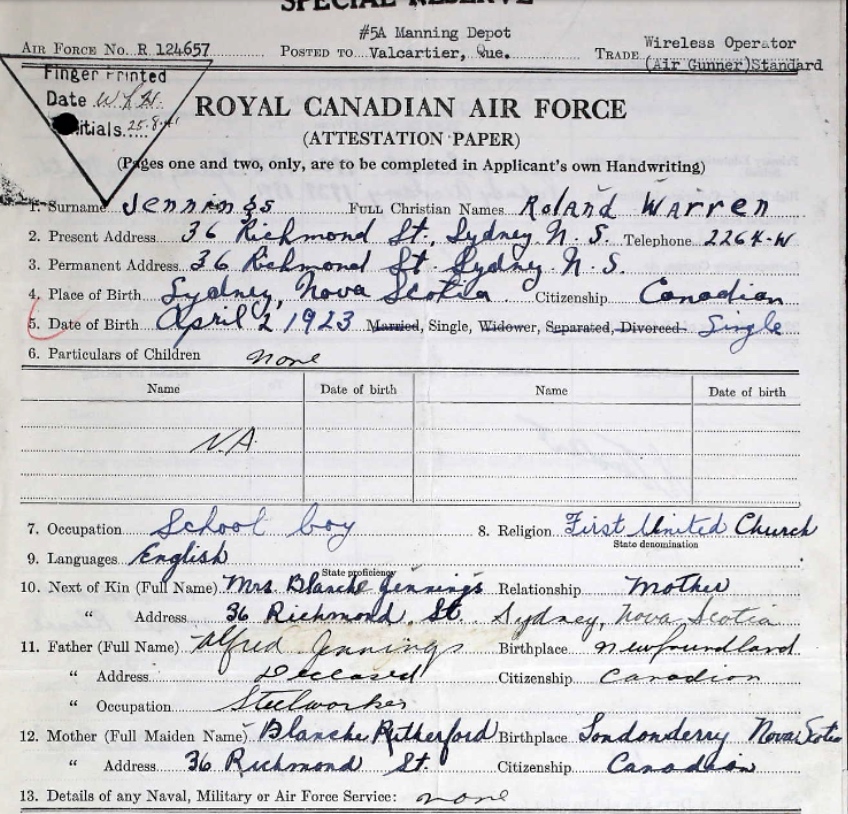 SPECIAL RESERVE
#5A Manning Depot
AIR FORCE NO. R 124657 POSTED TO Valcartier, Que. TRADE Wireless Operator
(Air Gunner)Standard
Finger Printed
Date W.L.H.
Initials 25-8-41
ROYAL CANADIAN AIR FORCE
(ATTESTATION PAPER)
(Pages one and two, only, are to be completed in Applicant's own Handwriting)
1. Surname Jennings FULL Christian Names Roland Warren
2. Present Address 36 Richmond St., Sydney N. S. Telephone 2264-W
3. Permanent Address 36 Richmond St Sydney N. S.
4. Place of Birth Sydney, Nova Scotia Citizenship Canadian
5. Date of Birth April 2 1923 Married, Single, Widower, Separated, Divorced Single
6. Particulars of Children none
Name Date of birth Name Date of birth
N.A.
7. Occupation School boy 8. Religion First United Church
State denomination
9. Languages English
State proficiency
10. Next of Kin (Full Name) Mrs. Blanche Jennings Relationship Mother
" Address 36 Richmond St. Sydney, Nova Scotia
11. Father (Full Name) Alfred Jennings Birthplace Newfoundland
" Address Deceased Citizenship Canadian
" Occupation Steelworker
12. Mother (Full Maiden Name) Blanche Rutherford Birthplace Londonderry Nova Scotia
" Address 36 Richmond St. Citizenship Canadian
13. Details of any Naval, Military or Air Force Service: none